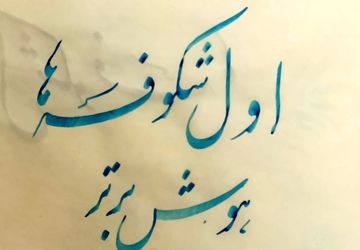 اول شکوفه ها
هوش برتر